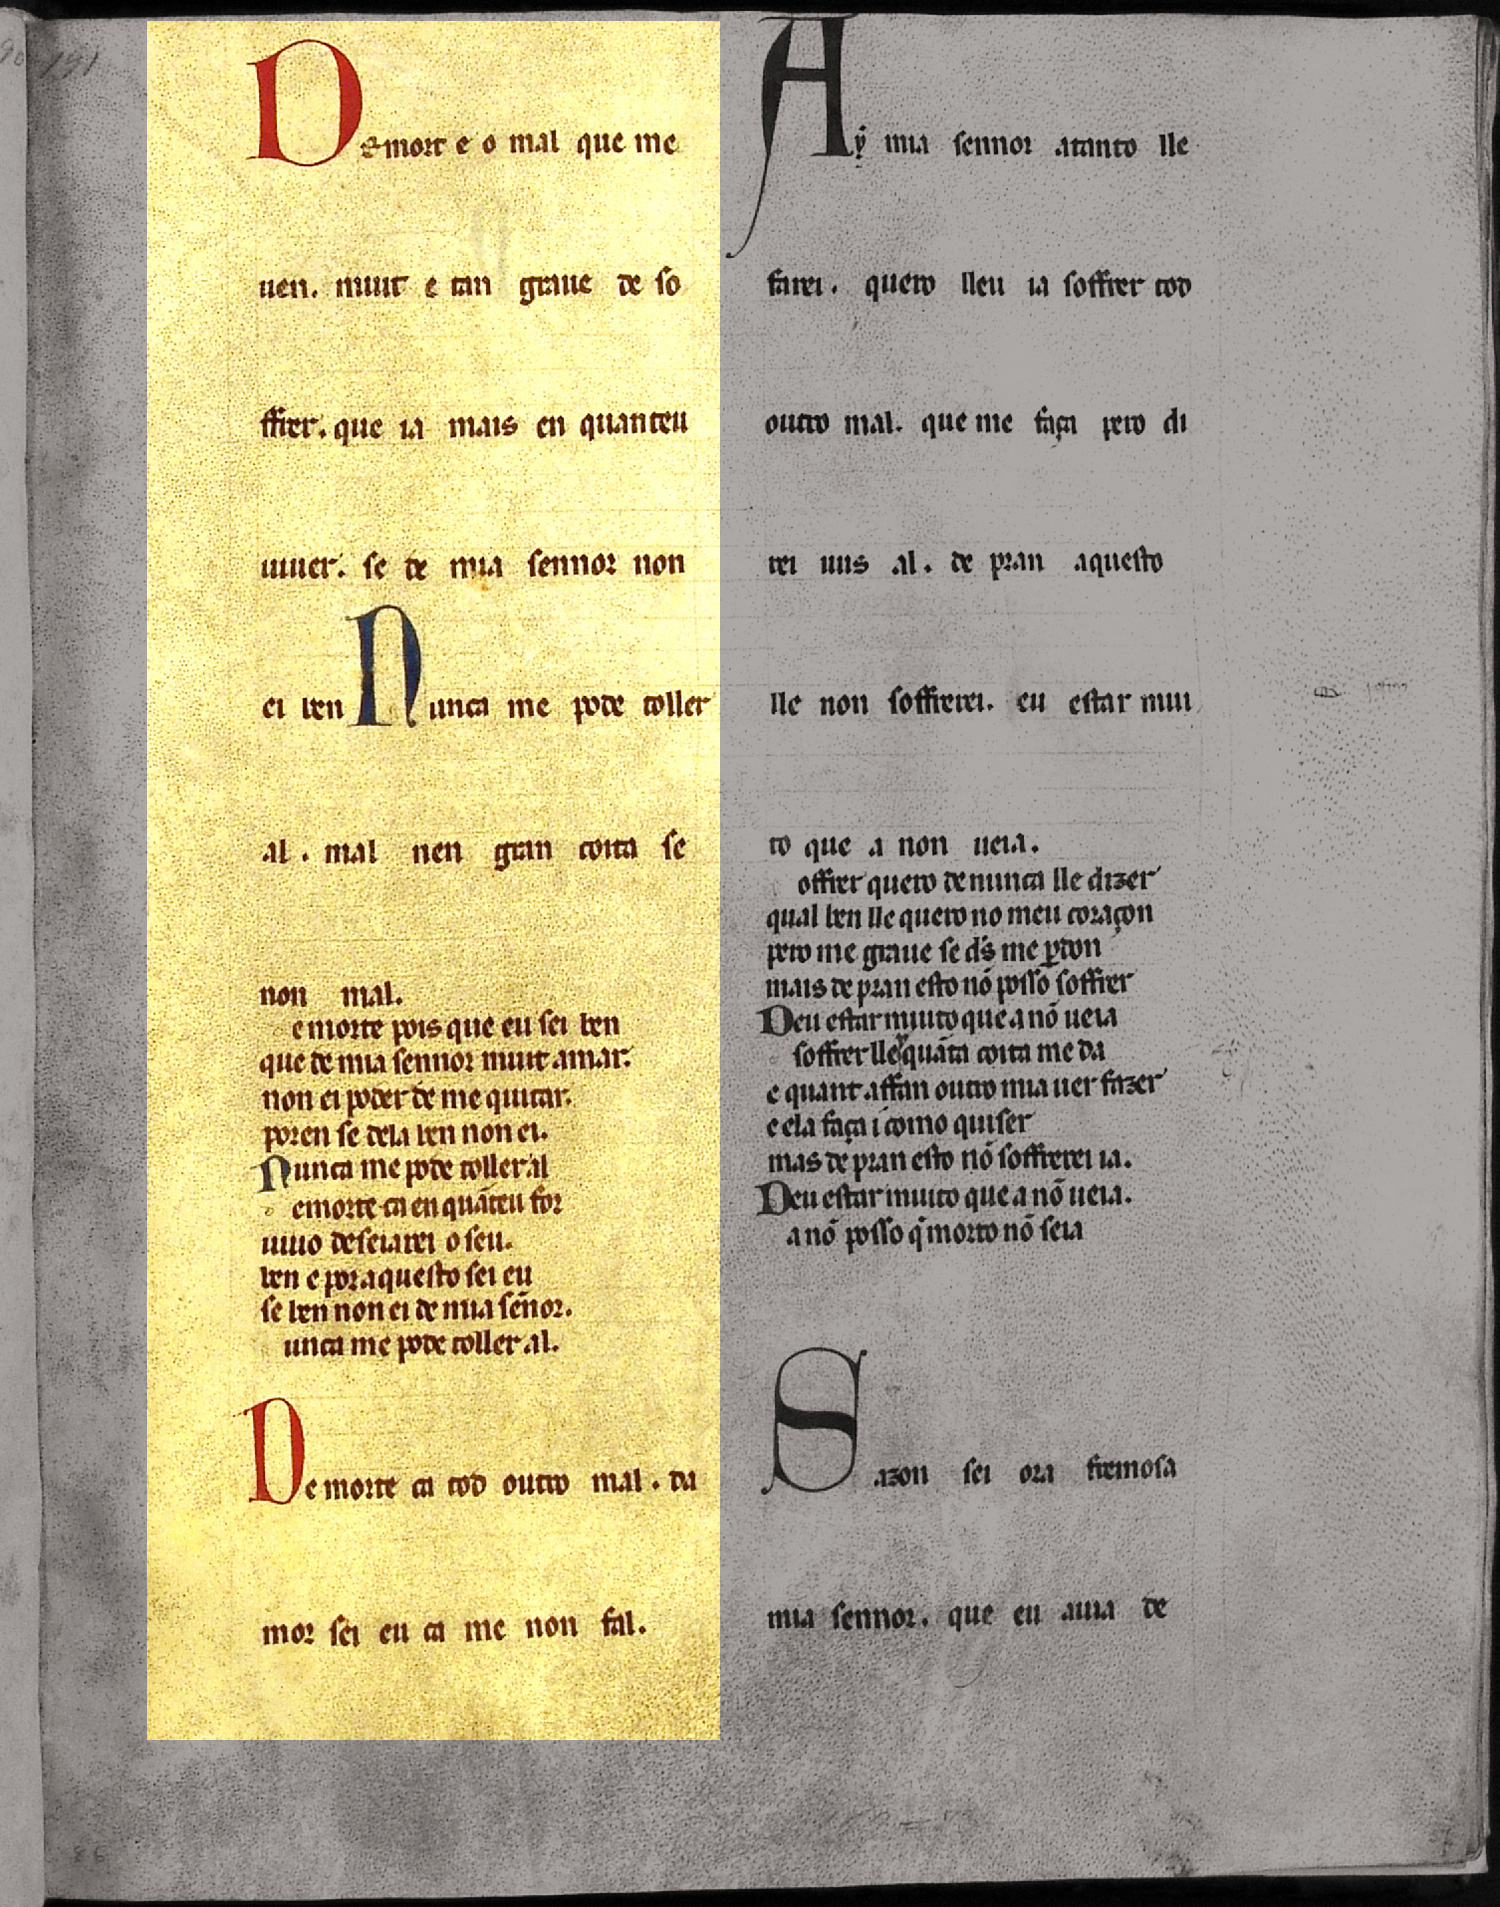 De mort e o mal que me
uen. muit e tan graue de so
ffrer. que ia mais en quanteu
uiuer. se de mia sennor non
ei ben Nunca me pode toller
al. mal nen gran coita se
non mal.
e morte pois que eu sei ben
que de mia sennor muit amar.
non ei poder de me quitar.
poren se dela ben non ei.
Nunca me pode toller al
e morte ca en quãteu for
uiuo deseiarei o seu.
ben e por aquesto sei eu
se ben non ei de mia señor.
unca me pode toller al.
De morte ca tod outro mal. da
mor sei eu ca me non fal.
Aẏ mia sennor atanto lle
farei. quero lleu ia soffrer tod
outro mal. que me faça pero di
rei uus al. de pran aquesto
lle non soffrerei. eu estar mui
to que a non ueia.
offrer quero de nunca lle dizer
qual ben lle quero no meu coraçon
pero me graue se d̃s me ꝑdon
mais de pran esto nõ posso soffrer
Deu estar muito que a nõ ueia
soffrer lley quãta coita me da
e quant affan outro mia uer fazer
e ela faça i como quiser
mas de pran esto nõ soffrerei ia.
Deu estar muito que a nõ ueia.
a nõ posso q̃ morto nõ seia
Sazon sei ora fremosa
mia sennor. que eu auia de